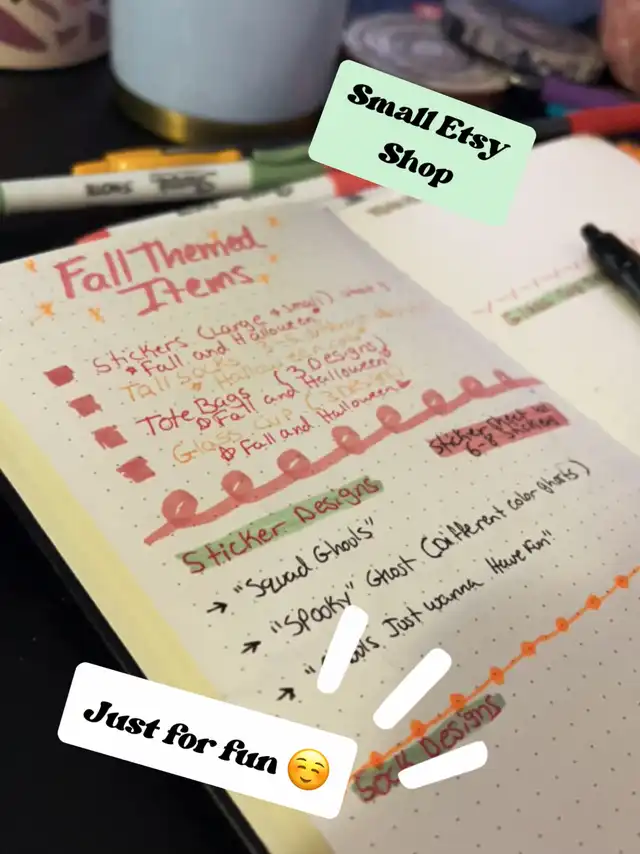 Small Etsy
Shop
Sharpie
Fall Themed
Items
Stickers (Large + Small)
Fall and Halloween
Tall Socks
Halloween
Tote Bags (3 Designs)
Fall and Halloween
Glass Cup (3 Design)
Fall and Halloween
Sticker Sheet w/
6-8 Stickers
Sticker Designs
→ "Squad Ghouls"
→ "Spooky" Ghost (Different color ghosts)
→ " Just wanna Have Fun"
Sock Designs
Just for fun ☺️